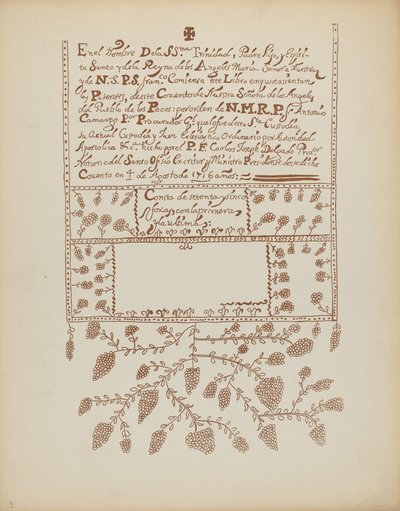 En el Nombre De la SS.ma Trinidad, Padre Hijo y Espiri-
tu Santo y de la Reyna de los Angeles Maria Señora Nuestra
y de N. S. P. S. Fran.co Comiensa este Libro en que se asientan
las Patentes, de este Convento de Nuestra Señora de los Angeles
del Pueblo de los Pecos: por orden de N. M. R. P. Fr. Antonio
Camargo Por Procurador Gl. que fue de esta S.ta Custodia,
su Actual Custodio y Juez Eclesiastico Ordinario por Autoridad
Apostolica &.a hecho por el P. F. Carlos Joseph Delgado Predr
Notario del Santo Ofisio Ex critor y Ministro Presidente de dicho
Covento en 4 de Agosto de 1716 años:
Consta de setenta y sinco
foxas con la primera
y la ultima: